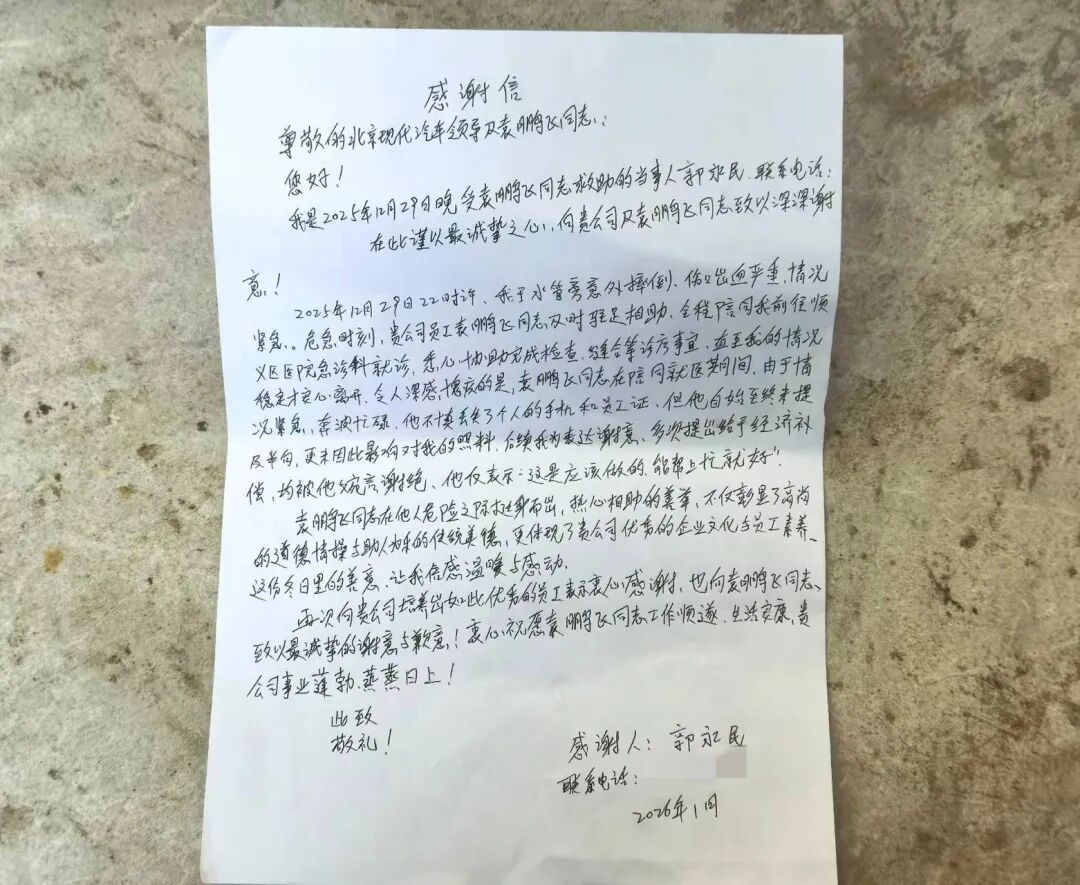 感谢信
尊敬的北京现代汽车领导及袁鹏飞同志：
您好！
我是2025年12月29日晚受袁鹏飞同志救助的当事人郭永民.联系电话：
在此谨以最诚挚之心，向贵公司及袁鹏飞同志致以深深谢
意！
2025年12月29日22时许、我于水管旁意外摔倒、伤口出血严重、情况
紧急。危急时刻，贵公司员工袁鹏飞同志及时驻足相助、全程陪同我前往顺
义区医院急诊科就诊，悉心协助完成检查、缝合等诊疗事宜，直至我的情况
稳定才安心离开、令人深感愧疚的是，袁鹏飞同志在陪同就医期间，由于情
况紧急，奔波忙碌，他不慎丢失了个人的手机和员工证，但他自始至终未提
及半句，更未因此影响对我的照料，后续我为表达谢意、多次提出给予经济补
偿，均被他婉言谢绝、他仅表示：“这是应该做的，能帮上忙就好”.
袁鹏飞同志在他人危险之际挺身而出，热心相助的善举，不仅彰显了高尚
的道德情操与助人为乐的传统美德，更体现了贵公司优秀的企业文化与员工素养、
这份冬日里的善意、让我倍感温暖与感动.
再次向贵公司培养出如此优秀的员工表示衷心感谢，也向袁鹏飞同志、
致以最诚挚的谢意与歉意！衷心祝愿袁鹏飞同志工作顺遂、生活安康，贵
公司事业蓬勃、蒸蒸日上！
此致
敬礼！
感谢人：郭永民
联系电话：
2026年1月